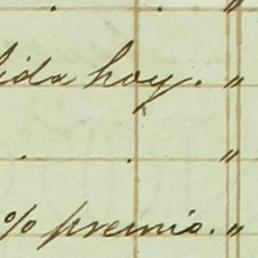 . "
ida hoy. "
. . "
% premio. "